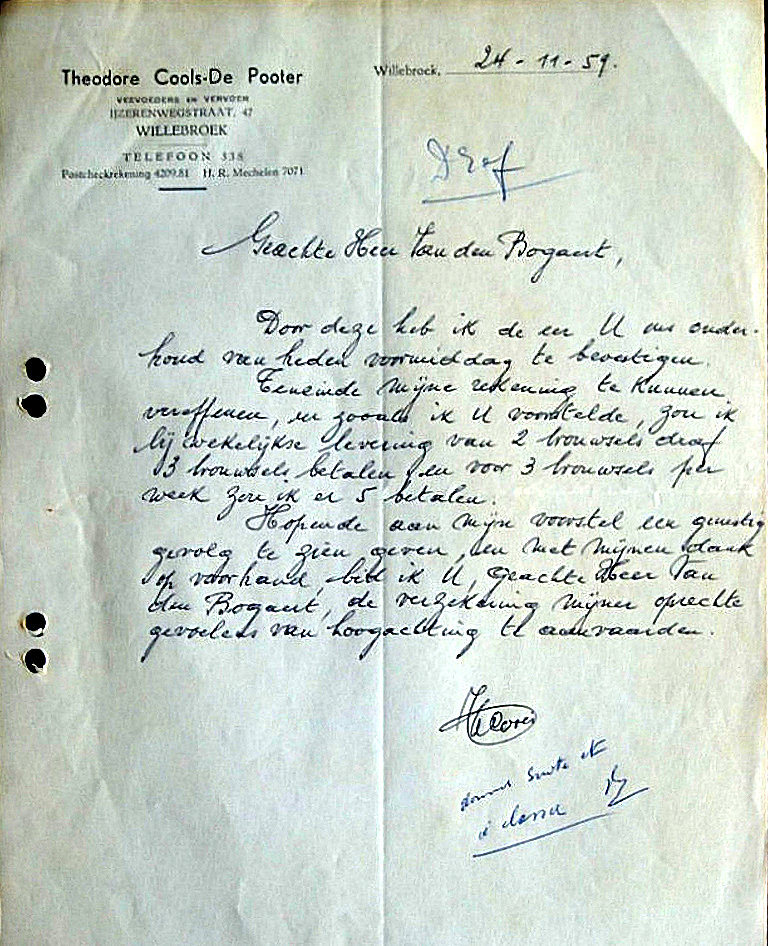 Theodore Cools-De Pooter
VEEVOEDERS EN VERVOER
IJZERENWEGSTRAAT, 47
WILLEBROEK
TELEFOON 338
Postcheckrekening 4209.81 H. R. Mechelen 7071
Willebroek, 24-11-59.
Draf
Geachte Heer Van den Bogaert,
Door deze heb ik de eer U ons onder-
houd van heden voormiddag te bevestigen.
Teneinde mijne rekening te kunnen
vereffenen, en zooals ik U voorstelde, zou ik
bij wekelijkse levering van 2 brouwsels draf
3 brouwsels betalen, en voor 3 brouwsels per
week zou ik er 5 betalen.
Hopende aan mijn voorstel een gunstig
gevolg te zien geven, en met mijnen dank
op voorhand, bid ik U, geachte Heer Van
den Bogaert, de verzekering mijner oprechte
gevoelens van hoogachting te aanvaarden.
donner suite et
à classer